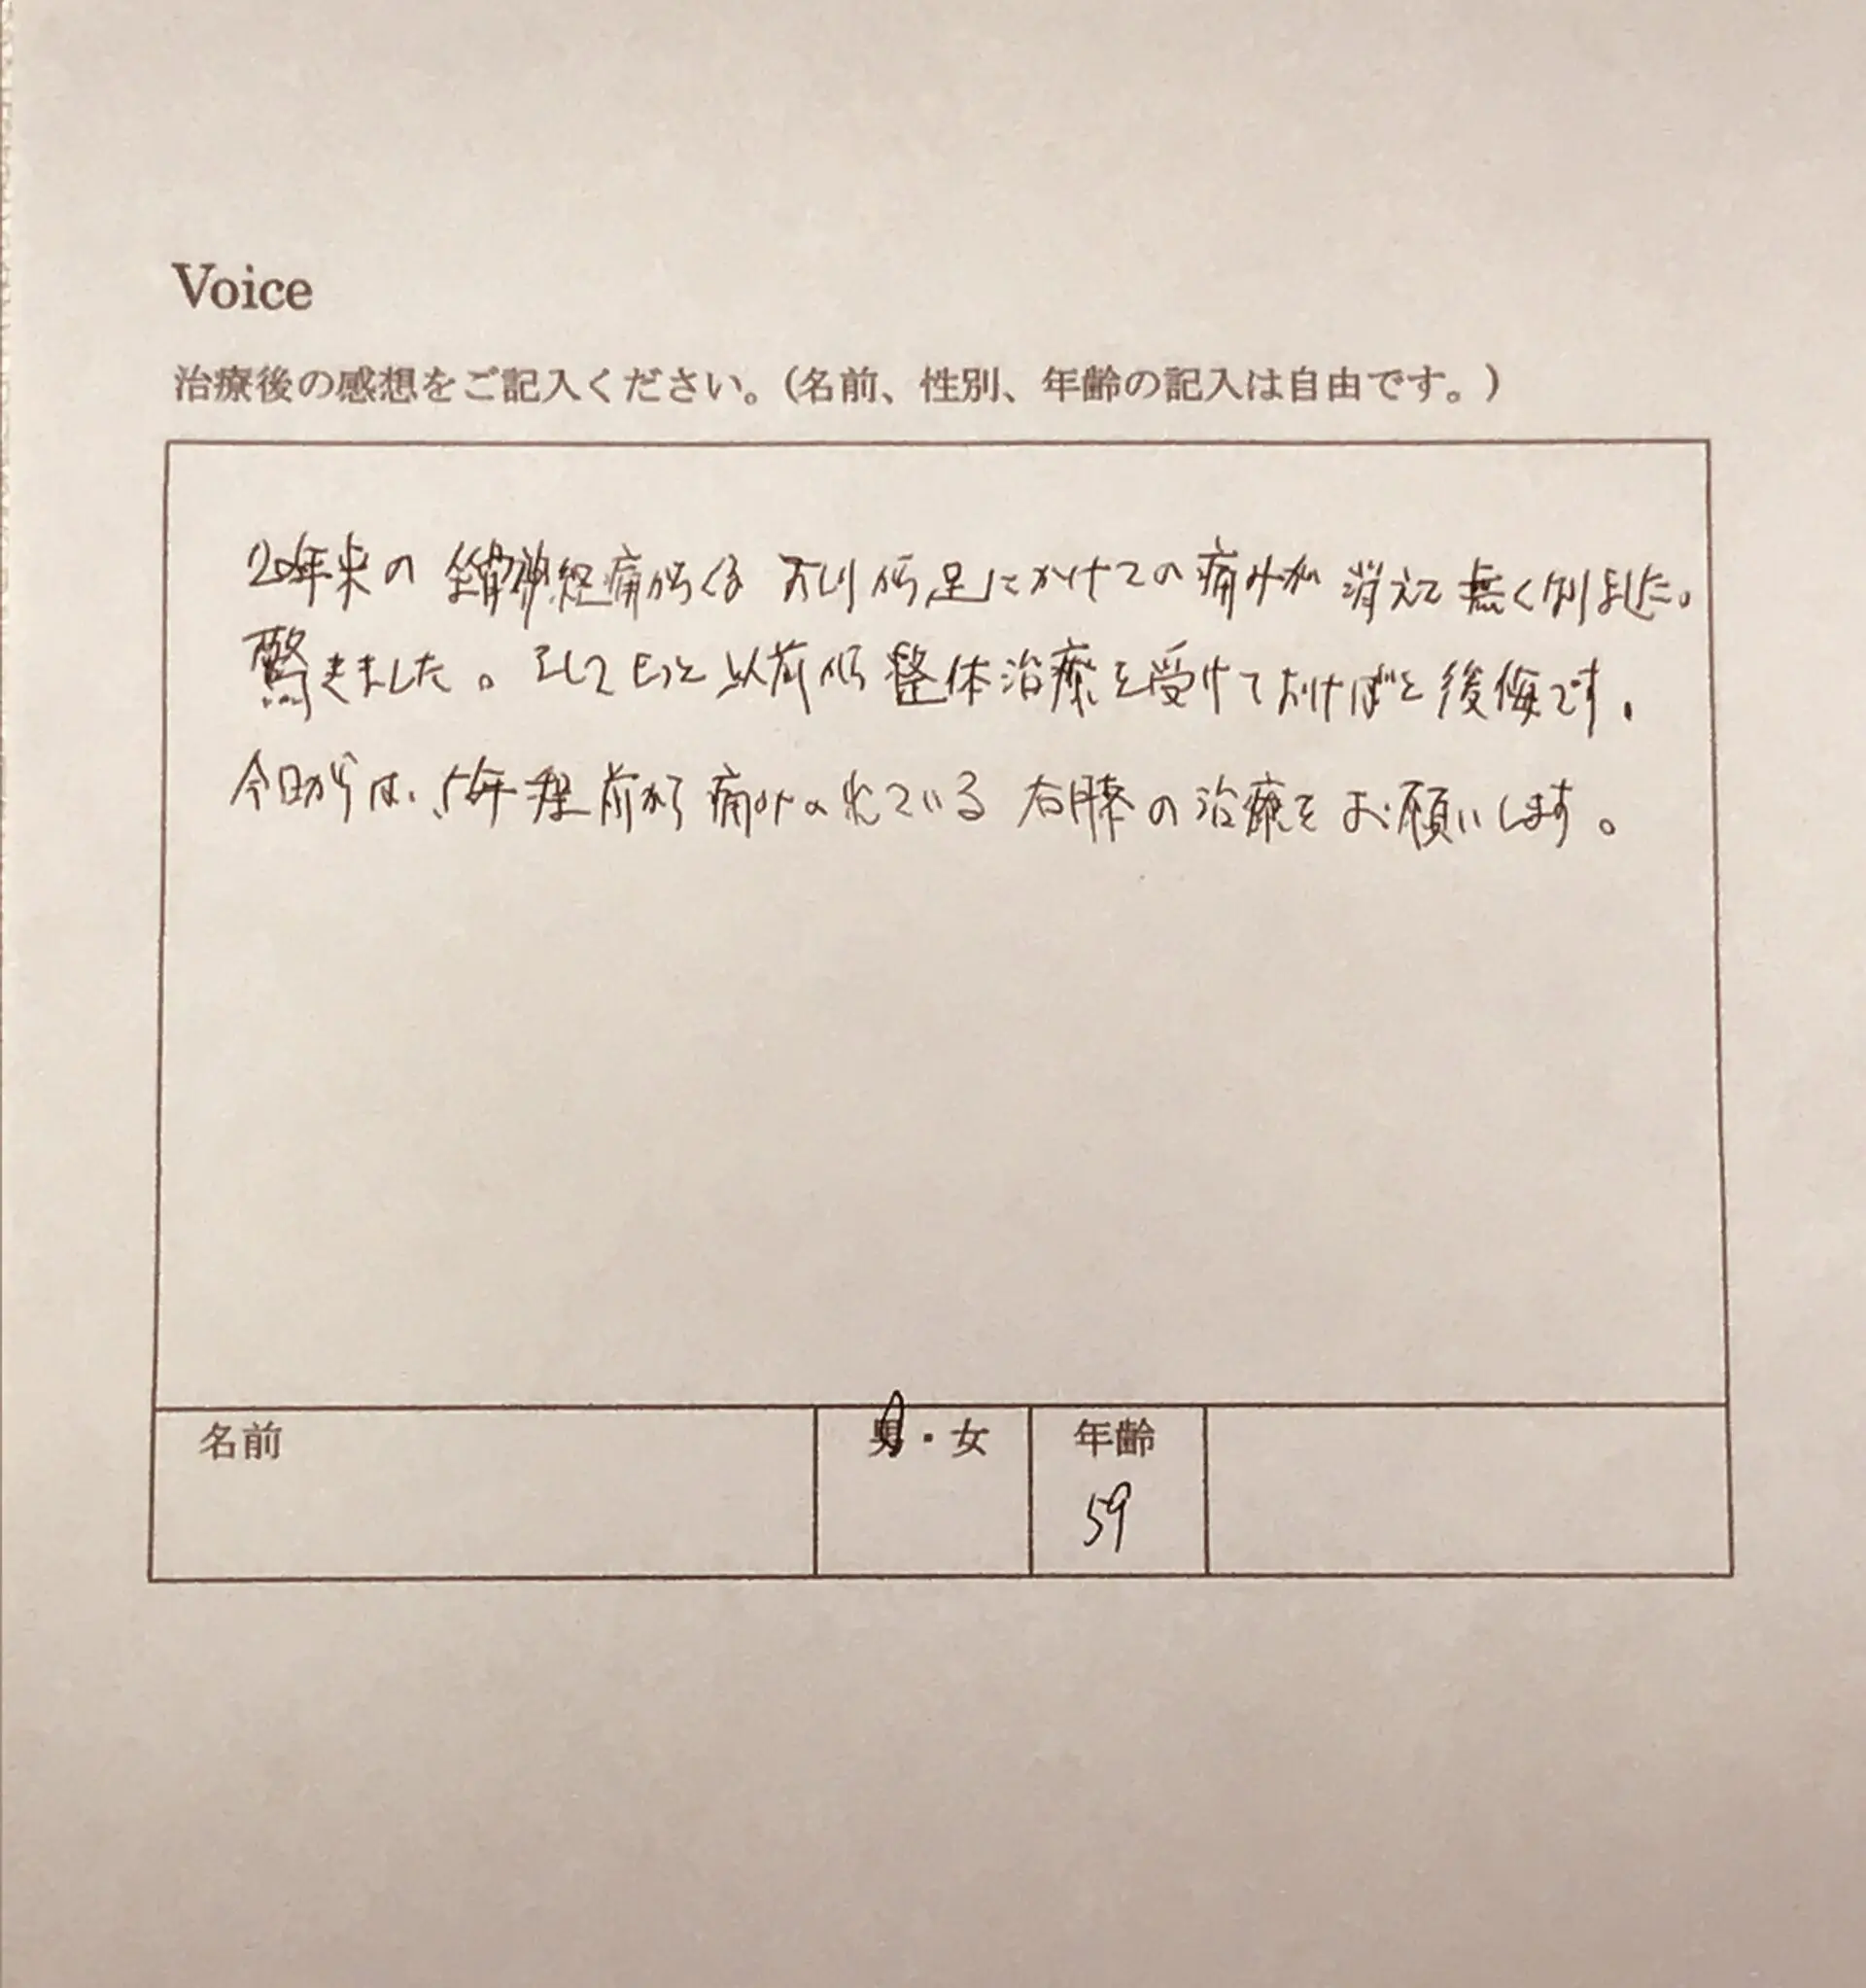 Voice
治療後の感想をご記入ください。(名前、性別、年齢の記入は自由です。)
20年来の 神経痛からくる おしりから足にかけての痛みが 消えて無くなりました。
驚きました。そしてもっと以前から整体治療を受けておければと後悔です。
今日からは、5年程前から痛みの れている 右膝の治療をお願いします。
名前
男・女
年齢
59